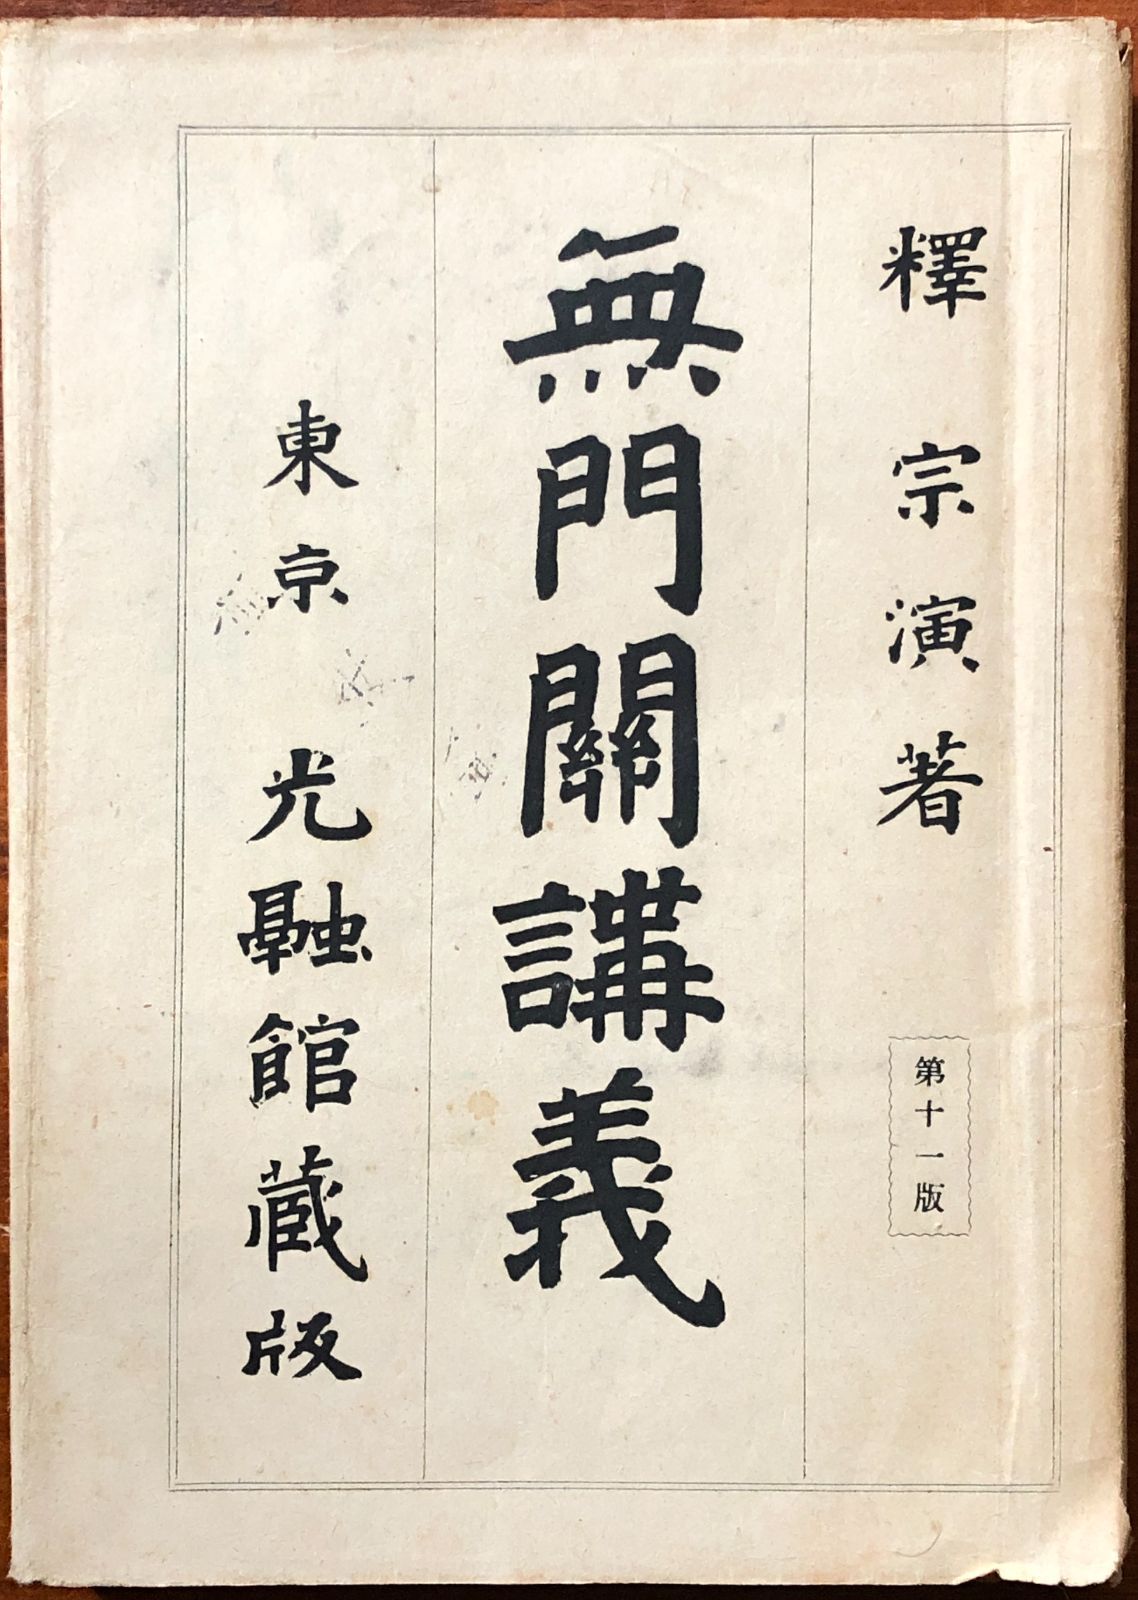 釋宗演著
第十一版
無門關講義
東京 光融館蔵版